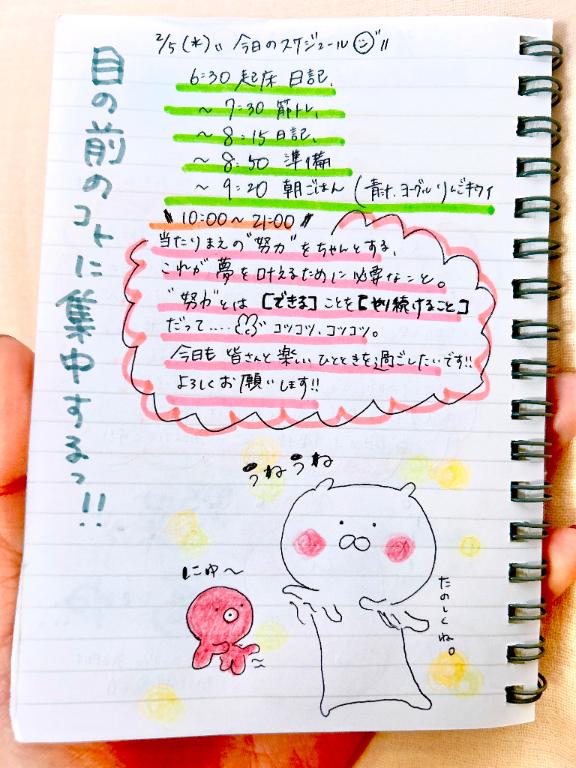 2/5(水)〃 今日のスケジュール〃
6:30 起床 日記、
〜 7:30 筋トレ、
〜 8:15 日記、
〜 8:50 準備
〜 9:20 朝ごはん (青汁、ヨーグルト、りんごキウイ
10:00〜21:00
目の前のコトに集中するっ!!
当たりまえの"努力"をちゃんとする、
これが夢を叶えるために必要なこと。
"努力"とは [できる] ことを [やり続けること]
だって……コツコツ、コツコツ。
今日も皆さんと楽しいひとときを過ごしたいです!!
よろしくお願いします!!
うねうね
にゅ〜
たのしくね。